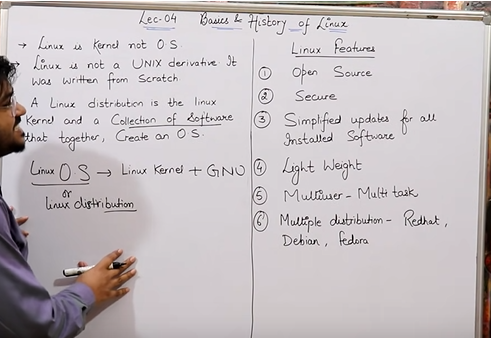 Lec-04 Basics & History of Linux
→ Linux is Kernel not O S
→ Linux is not a UNIX derivative It
was written from Scratch
A Linux distribution is the linux
Kernel and a Collection of Software
that together, Create an O S.
Linux O.S → Linux Kernel + GNU
or
linux distribution
Linux Features
1 Open Source
2 Secure
3 Simplified updates for all
Installed Software
4 Light Weight
5 Multiuser - Multi task
6 Multiple distribution - Redhat,
Debian, fedora